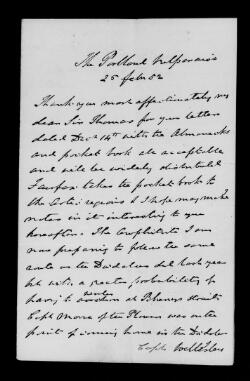 The Portland Valparaiso
25 Feb 52
Thank you most affectionately my
dear Sir Thomas for your letter
dated Decr 14th with the Almanacks
and pocket book all acceptable
and will be widely distributed
Fairfax takes the pocket book to
the Arctic regions & I hope may make
notes in it interesting to you
hereafter. The Amphitrite I am
now preparing to follow the same
route as the Daedalus did last year
but with a greater probability of
having to winter at Behrings Straits
Capt Moore of the Plover was on the
point of coming home in the Daedalus
Capt Wellesley